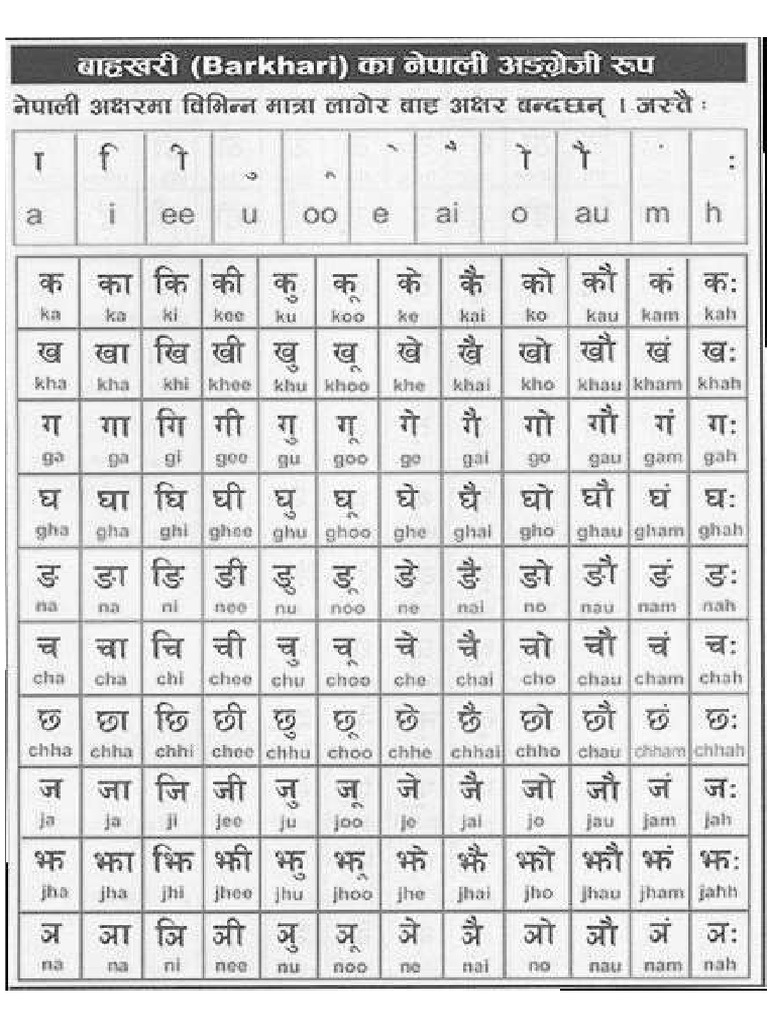 बाह्रखरी (Barkhari) का नेपाली अङग्रेजी रूप
नेपाली अक्षरमा विभिन्न मात्रा लागेर बाह्र अक्षर बन्दछन् । जस्तै :
ा ि ी ु ू े ै ो ौ ं :
a i ee u oo e ai o au m h
क का कि की कु कू के कै को कौ कं क:
ka ka ki kee ku koo ke kai ko kau kam kah
ख खा खि खी खु खू खे खै खो खौ खं ख:
kha kha khi khee khu khoo khe khai kho khau kham khah
ग गा गि गी गु गू गे गै गो गौ गं ग:
ga ga gi gee gu goo ge gai go gau gam gah
घ घा घि घी घु घू घे घै घो घौ घं घ:
gha gha ghi ghee ghu ghoo ghe ghai gho ghau gham ghah
ङ ङा ङि ङी ङु ङू ङे ङै ङो ङौ ङं ङ:
na na ni nee nu noo ne nai no nau nam nah
च चा चि ची चु चू चे चै चो चौ चं च:
cha cha chi chee chu choo che chai cho chau cham chah
छ छा छि छी छु छू छे छै छो छौ छं छ:
chha chha chhi chee chhu choo chhe chhai chho chau chham chhah
ज जा जि जी जु जू जे जै जो जौ जं ज:
ja ja ji jee ju joo je jai jo jau jam jah
झ झा झि झी झु झू झे झै झो झौ झं झ:
jha jha jhi jhee jhu jhoo jhe jhai jho jhau jham jahh
ञ ञा ञि ञी ञु ञू ञे ञै ञो ञौ ञं ञ:
na na ni nee nu noo ne nai no nau nam nah